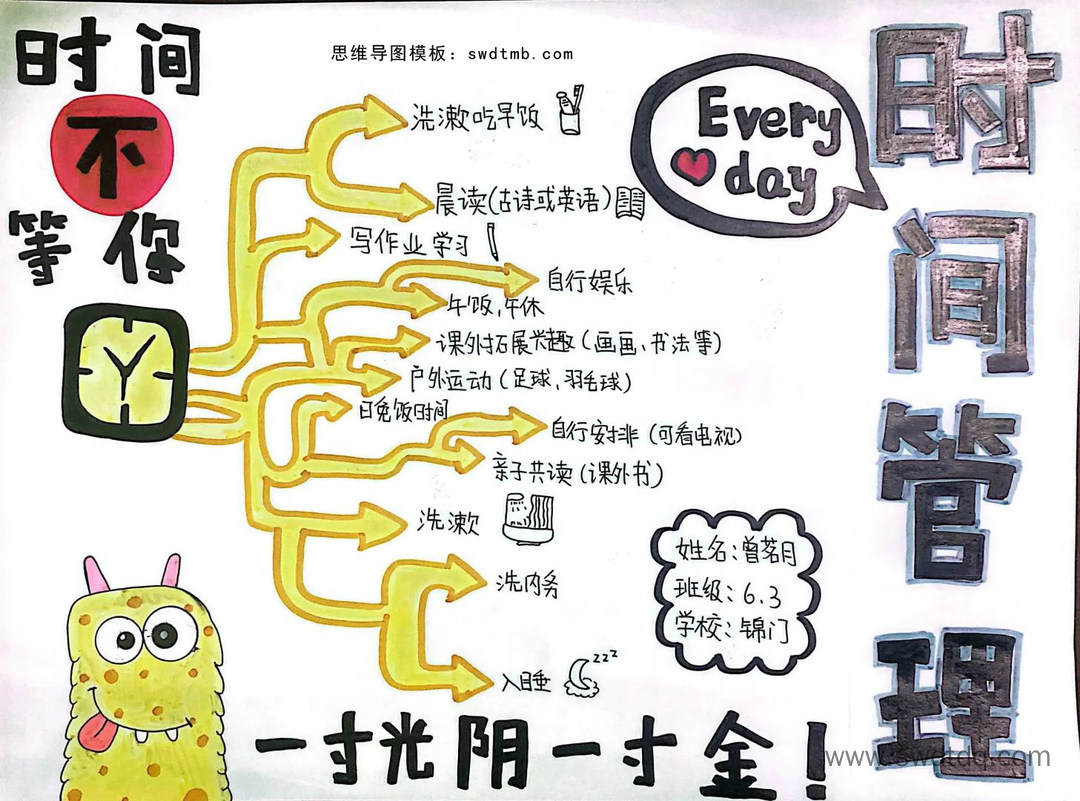 时间
不
等你
思维导图模板：swdtmb.com
Every
day
时间管理
洗漱吃早饭
晨读(古诗或英语)
写作业学习
自行娱乐
午饭,午休
课外拓展兴趣(画画、书法等)
户外运动(足球、羽毛球)
日免饭时间
自行安排(可看电视)
亲子共读(课外书)
洗漱
洗内务
入睡
zzz
姓名:曾茗月
班级:6.3
学校:锦门
一寸光阴一寸金!